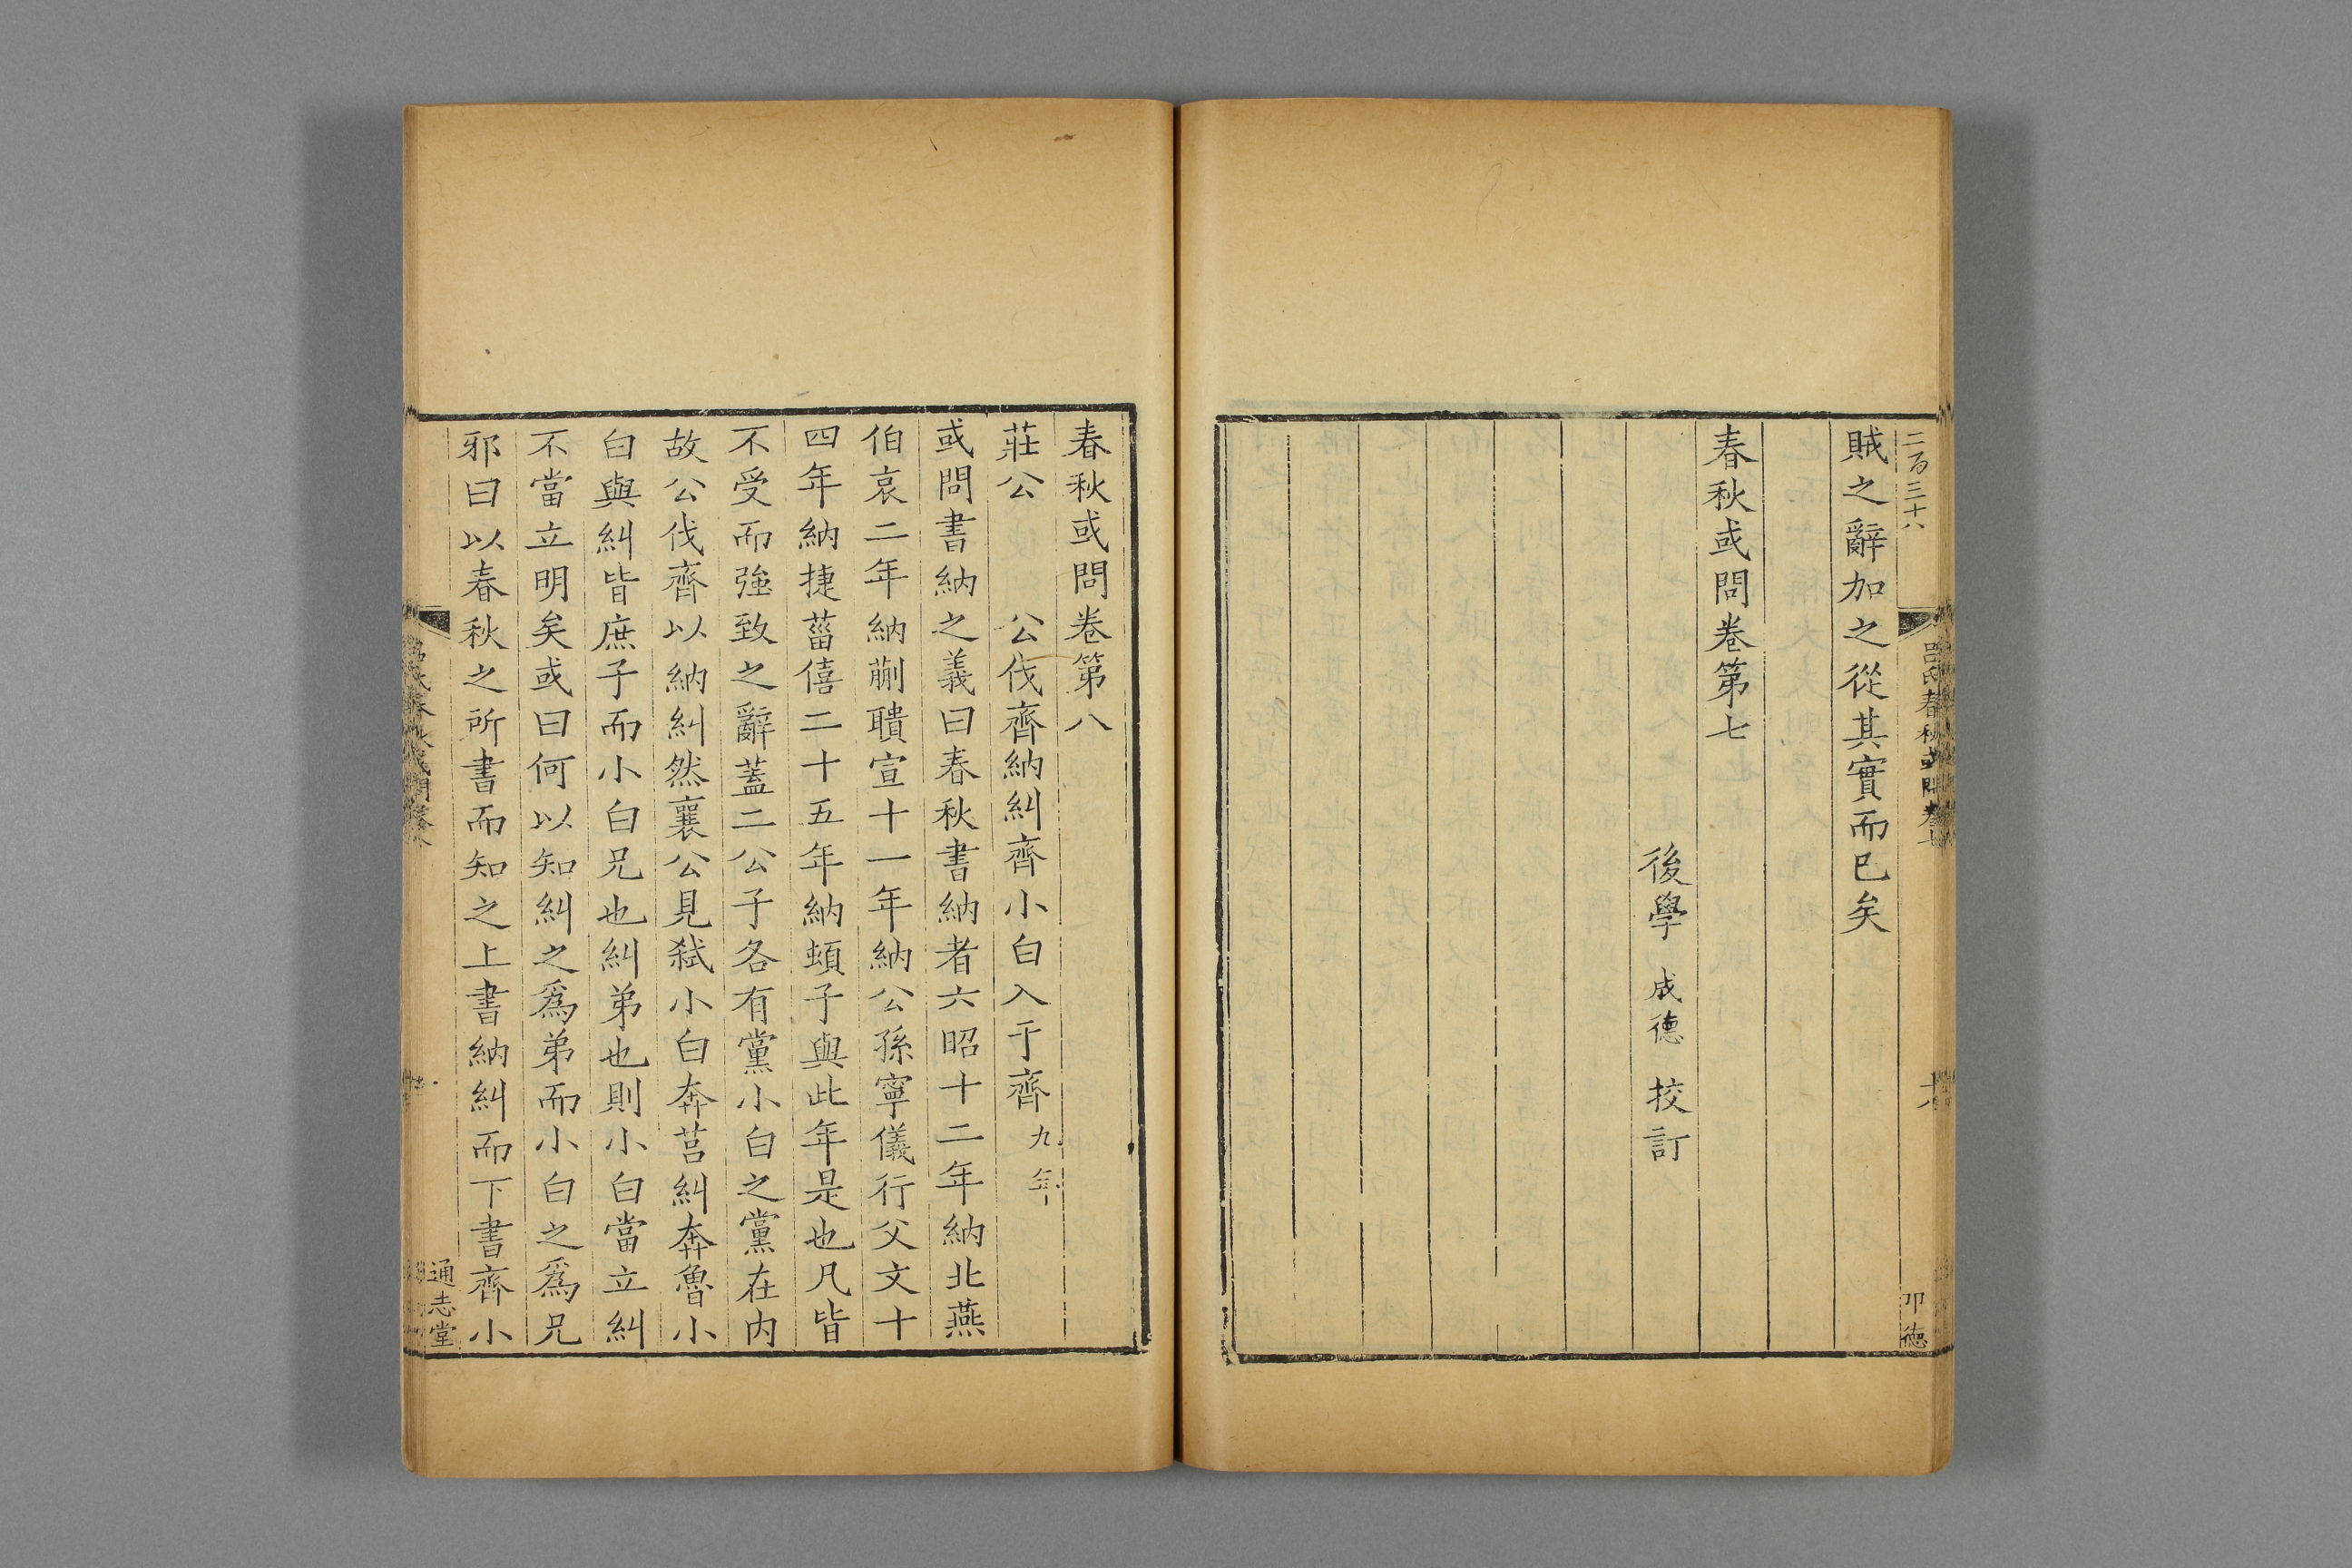 二百三十八
賊之辭加之從其實而已矣
春秋或問卷第七
後學 成德 校訂
呂氏春秋或問卷七
春秋或問卷第八
莊公 公伐齊納糾齊小白入于齊九年
或問書納之義曰春秋書納者六昭十二年納北燕
伯哀二年納蒯聵宣十一年納公孫寧儀行父文十
四年納捷菑僖二十五年納頓子與此年是也凡皆
不受而強致之辭蓋二公子各有黨小白之黨在內
故公伐齊以納糾然襄公見弒小白奔莒糾奔魯小
白與糾皆庶子而小白兄也糾弟也則小白當立糾
不當立明矣或曰何以知糾之為弟而小白之為兄
邪曰以春秋之所書而知之上書納糾而下書齊小
通志堂